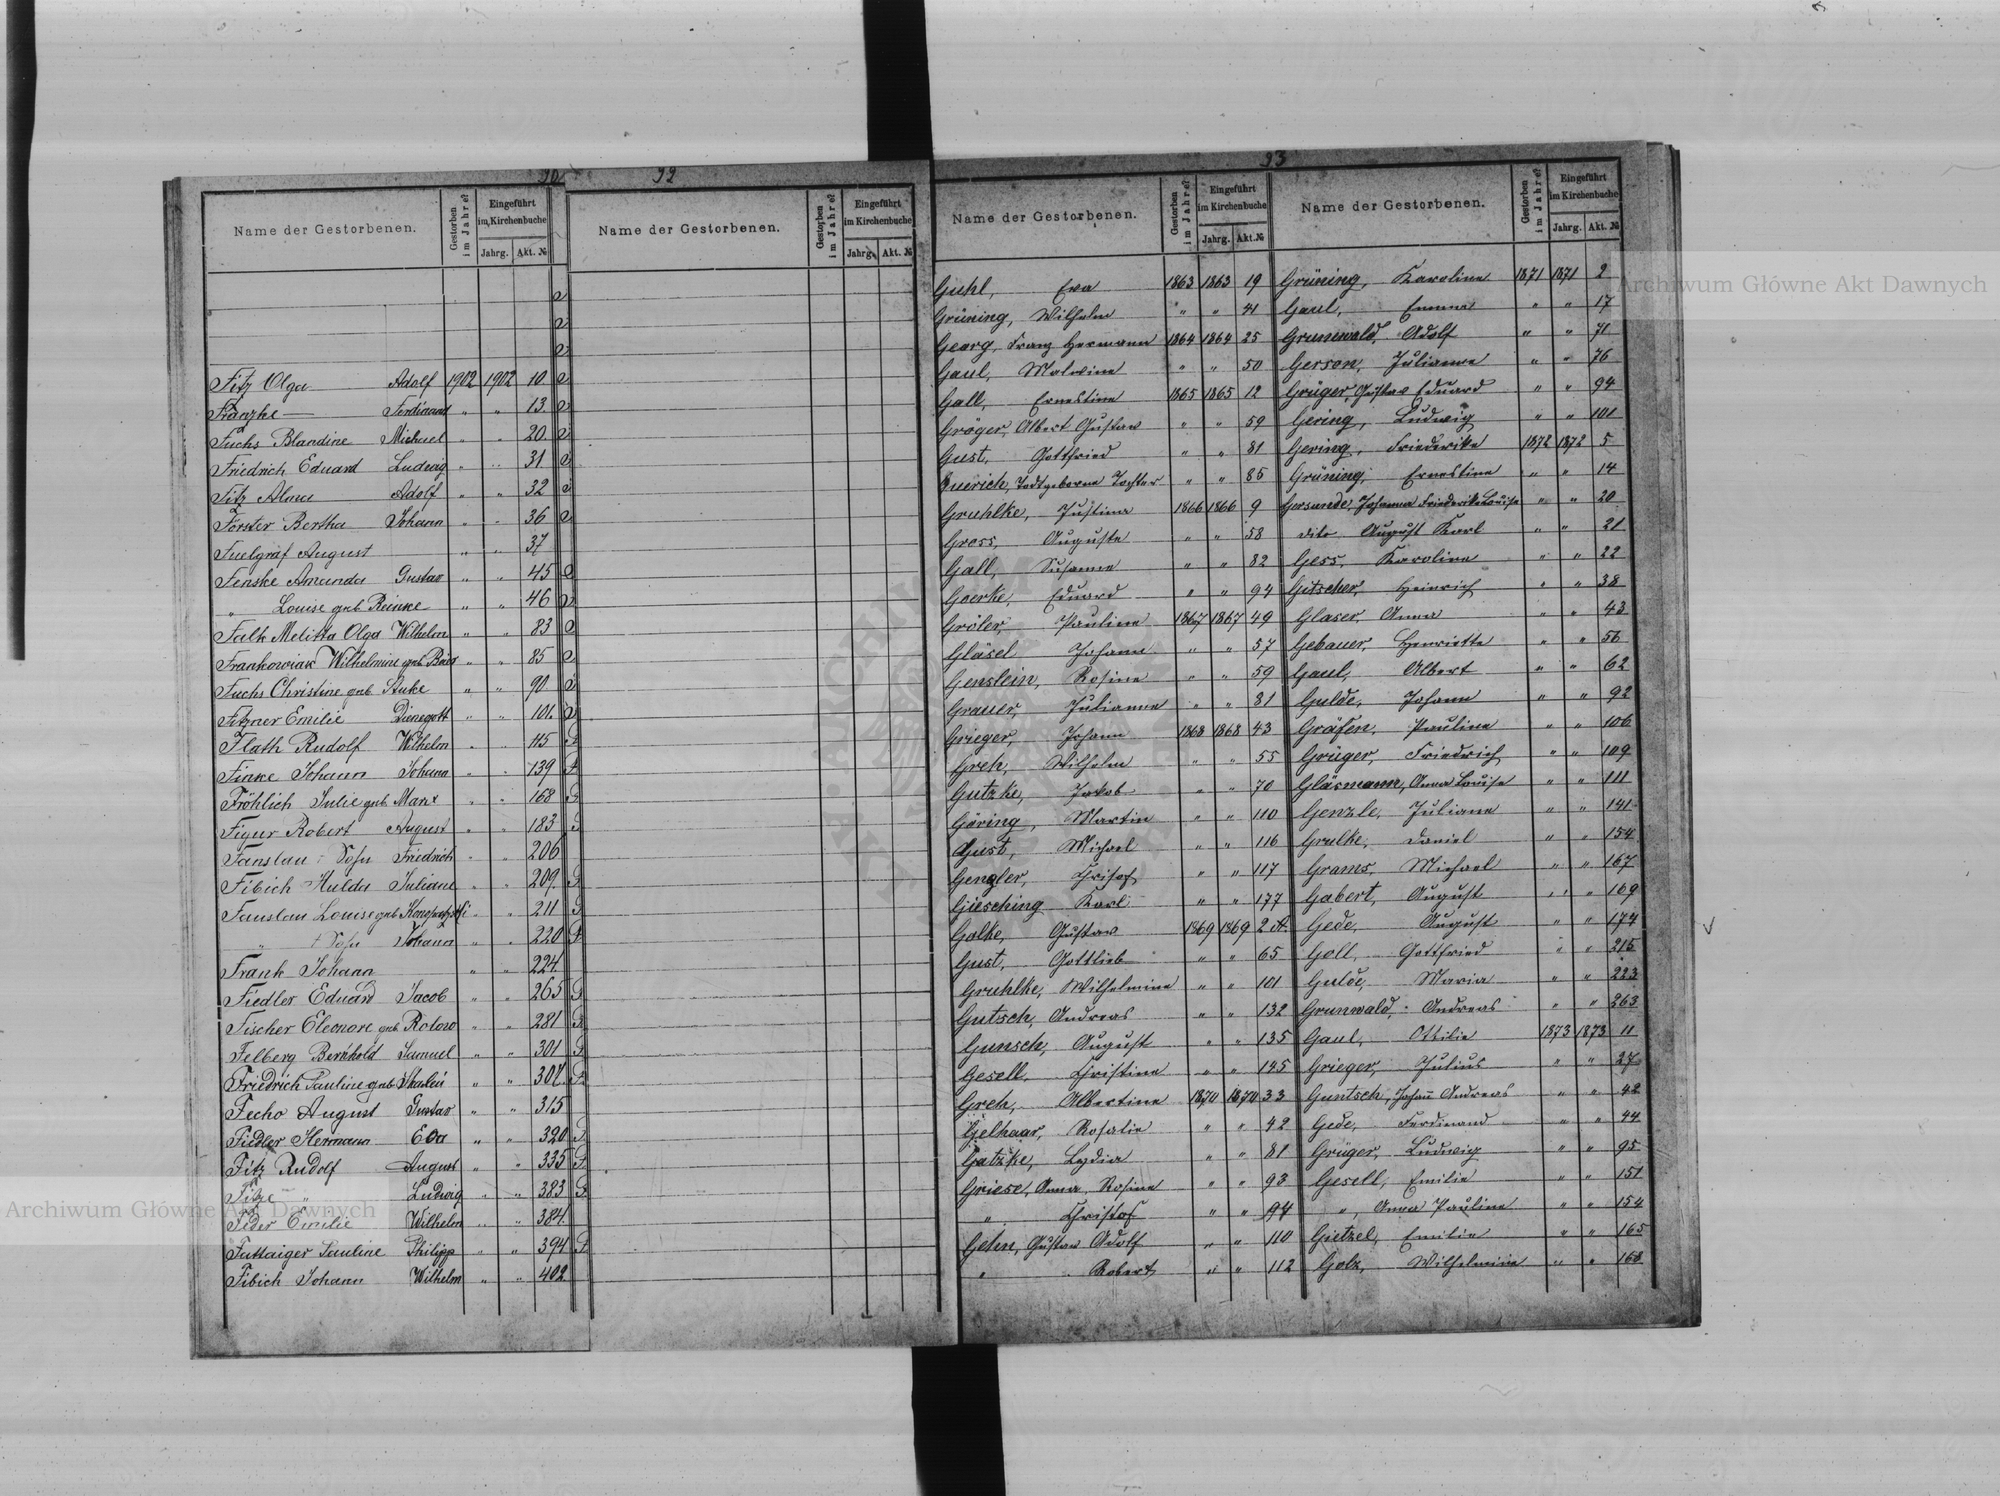 90
92
93
Name der Gestorbenen.
Gestorben im Jahre?
Eingeführt im Kirchenbuche
Jahrg. Akt. №
Fitz Olga Adolf 1902 1902 10
Fränzke — Ferdinand " " 13
Fuchs Blandine Michael " " 20
Friedrich Eduard Ludwig " " 31
Fitz Alma Adolf " " 32
Förster Bertha Johann " " 36
Fuelgraf August " " 37
Fenske Amanda Gustav " " 45
" Louise geb Reinke " " 46
Falk Melitta Olga Wilhelm " " 83
Frankowiak Wilhelmine geb " " 85
Fuchs Christine geb. " " 90
Fitzner Emilie Dienegott " " 101
Flath Rudolf Wilhelm " " 115
Finke Johann Johann " " 139
Fröhlich Julie geb Marx " " 168
Figur Robert August " " 183
Fanslau Friedrich " " 206
Fibich Hulda Juliane " " 209
Fanslau Louise geb " " 211
" Johann " " 220
Frank Johann " " 224
Fiedler Eduard Jacob " " 265
Fischer Eleonore geb " " 281
Felberg Berthold Samuel " " 301
Friedrich Pauline geb " " 307
Fecho August Gustav " " 315
Fiedler Hermann Eva " " 320
Fitz Rudolf August " " 335
" Ludwig " " 383
Feder Emilie Wilhelm " " 384
Futtaiger Pauline Philipp " " 394
Fibich Johann Wilhelm " " 402
Name der Gestorbenen.
Gestorben im Jahre?
Eingeführt im Kirchenbuche
Jahrg. Akt. №
Name der Gestorbenen.
Gestorben im Jahre?
Eingeführt im Kirchenbuche
Jahrg. Akt. №
Guhl, Eva 1863 1863 19
Grüning, Wilhelm " " 41
Georg, Franz Hermann 1864 1864 25
Gaul, Malwine " " 50
Gall, Ernestine 1865 1865 12
Gröger, Albert Gustav " " 59
Gust, Gottfried " " 81
Todtgeborne Tochter " " 85
Gruhlke, Justina 1866 1866 9
Gross, Auguste " " 58
Gall, Susanne " " 82
Goerke, Eduard " " 94
Gröler, Pauline 1867 1867 49
Gläsel Johann " " 57
Genslein, Rosine " " 59
Grauer, Julianne " " 81
Grieger, Johann 1868 1868 43
Greh, Wilhelm " " 55
Gutzke, Jakob " " 70
Göring, Martin " " 110
Gust, Michael " " 116
Gengler, Christof " " 117
Giesching Karl " " 177
Golke, Gustav 1869 1869 2 A.
Gust, Gottlieb " " 65
Gruhlke, Wilhelmine " " 101
Gutsch, Andreas " " 132
Gunsch, August " " 135
Gesell, Christine " " 195
Greh, Albertine 1870 1870 33
Gelhaar, Rosalie " " 42
Gatzke, Lydia " " 81
Griese, Anna Rosine " " 93
" Christof " " 94
Gehn, Gustav Adolf " " 110
" Robert " " 112
Name der Gestorbenen.
Gestorben im Jahre?
Eingeführt im Kirchenbuche
Jahrg. Akt. №
Grüning, Karoline 1871 1871 2
Gaul, Emma " " 17
Grunwald, Adolf " " 71
Gerson, Julianne " " 76
Grüger, Gustav Eduard " " 94
Gering, Ludwig " " 101
Gering, Friederike 1872 1872 5
Grüning, Ernestine " " 14
Gersunde, Johanna Friederike Louise " " 20
dito August Karl " " 21
Gess, Karoline " " 22
Gitscher, Heinrich " " 38
Glaser, Anna " " 43
Gebauer, Henriette " " 56
Gaul, Albert " " 62
Gulde, Johann " " 92
Gräfen, Pauline " " 106
Grüger, Friedrich " " 109
Gläsmann, Anna Louise " " 111
Genzle, Juliane " " 141
Grulke, Daniel " " 154
Grams, Michael " " 167
Gabert, August " " 169
Gede, August " " 174
Goll, Gottfried " " 215
Gulde, Maria " " 223
Grunwald, Andreas " " 263
Gaul, Ottilie 1873 1873 11
Grieger, Julius " " 27
Guntsch, Johann Andreas " " 42
Gede, Ferdinand " " 44
Grüger, Ludwig " " 95
Gesell, Emilie " " 151
", Anna Pauline " " 154
Gietzel, Emilie " " 165
Golz, Wilhelmine " " 168
Archiwum Główne Akt Dawnych
Archiwum Główne Akt Dawnych